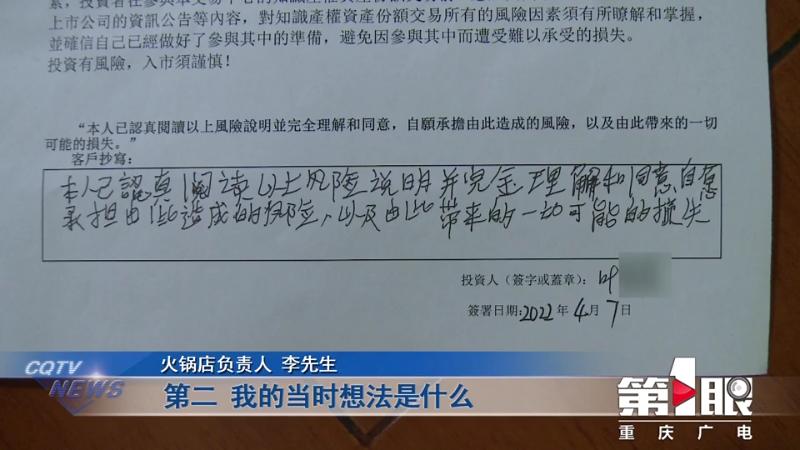 上市公司的資訊公告等內容，對知識產權資產份額交易所有的風險因素須有所瞭解和掌握，
並確信自己已經做好了參與其中的準備，避免因參與其中而遭受難以承受的損失。
投資有風險，入市須謹慎！
“本人已認真閱讀以上風險說明並完全理解和同意，自願承擔由此造成的風險，以及由此帶來的一切
可能的損失。”
客戶抄寫：
本人已認真閱读以上风险说明并完全理解和同意自愿
承担由此造成的风险，以及由此带来的一切可能的损失
投資人（簽字或蓋章）：叶
簽署日期：2022年4月7日
CQTV
NEWS
火锅店负责人 李先生
第二 我的当时想法是什么
第1眼
重庆广电